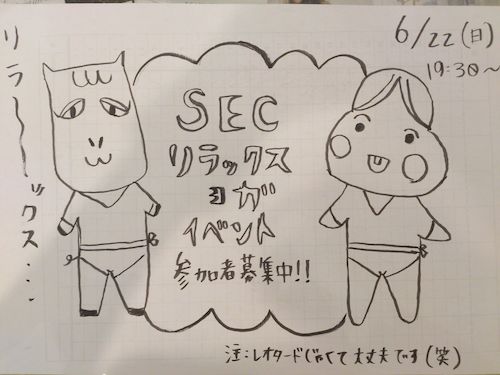 リラ〜〜ックス・・・
6/22(日)
19:30〜
SEC
リラックス
ヨガ
イベント
参加者募集中!!
注:レオタードじゃなくて大丈夫です(笑)